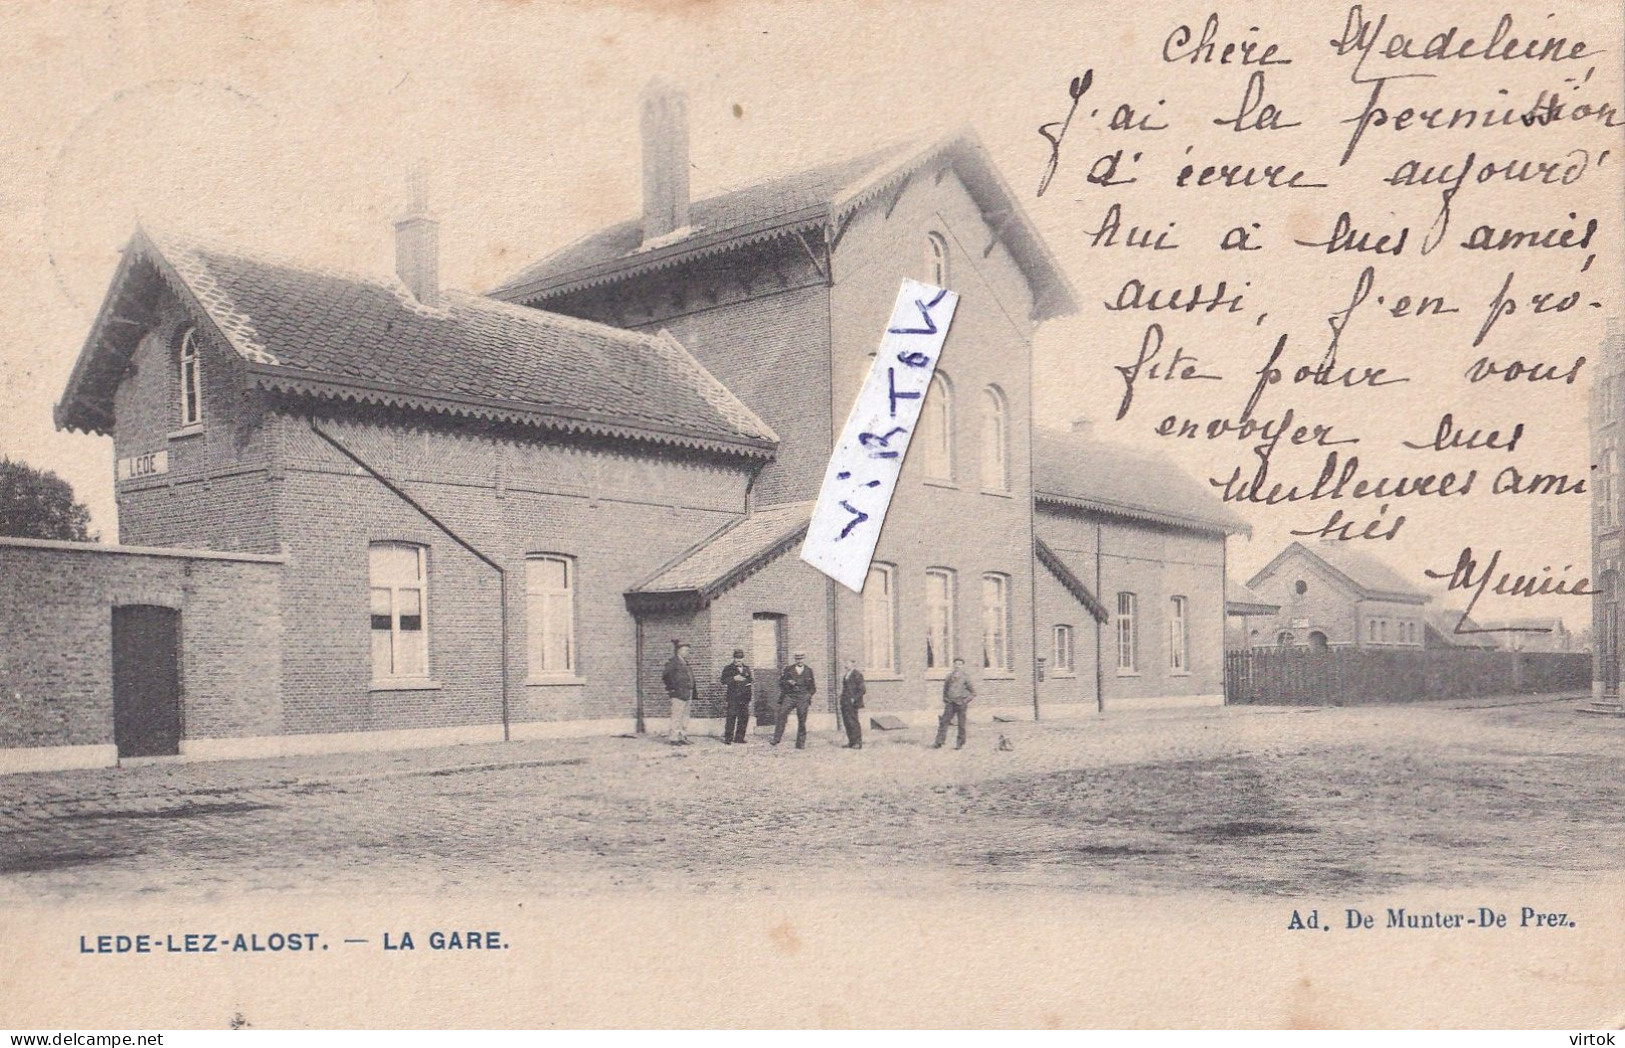 Chère Madeleine,
J'ai la permission
d'écrire aujourd'
hui à mes amies
aussi, j'en pro-
fite pour vous
envoyer mes
meilleures ami
tiés
Mimie
LEDE
ViRToK
LEDE-LEZ-ALOST. — LA GARE.
Ad. De Munter-De Prez.
virtok